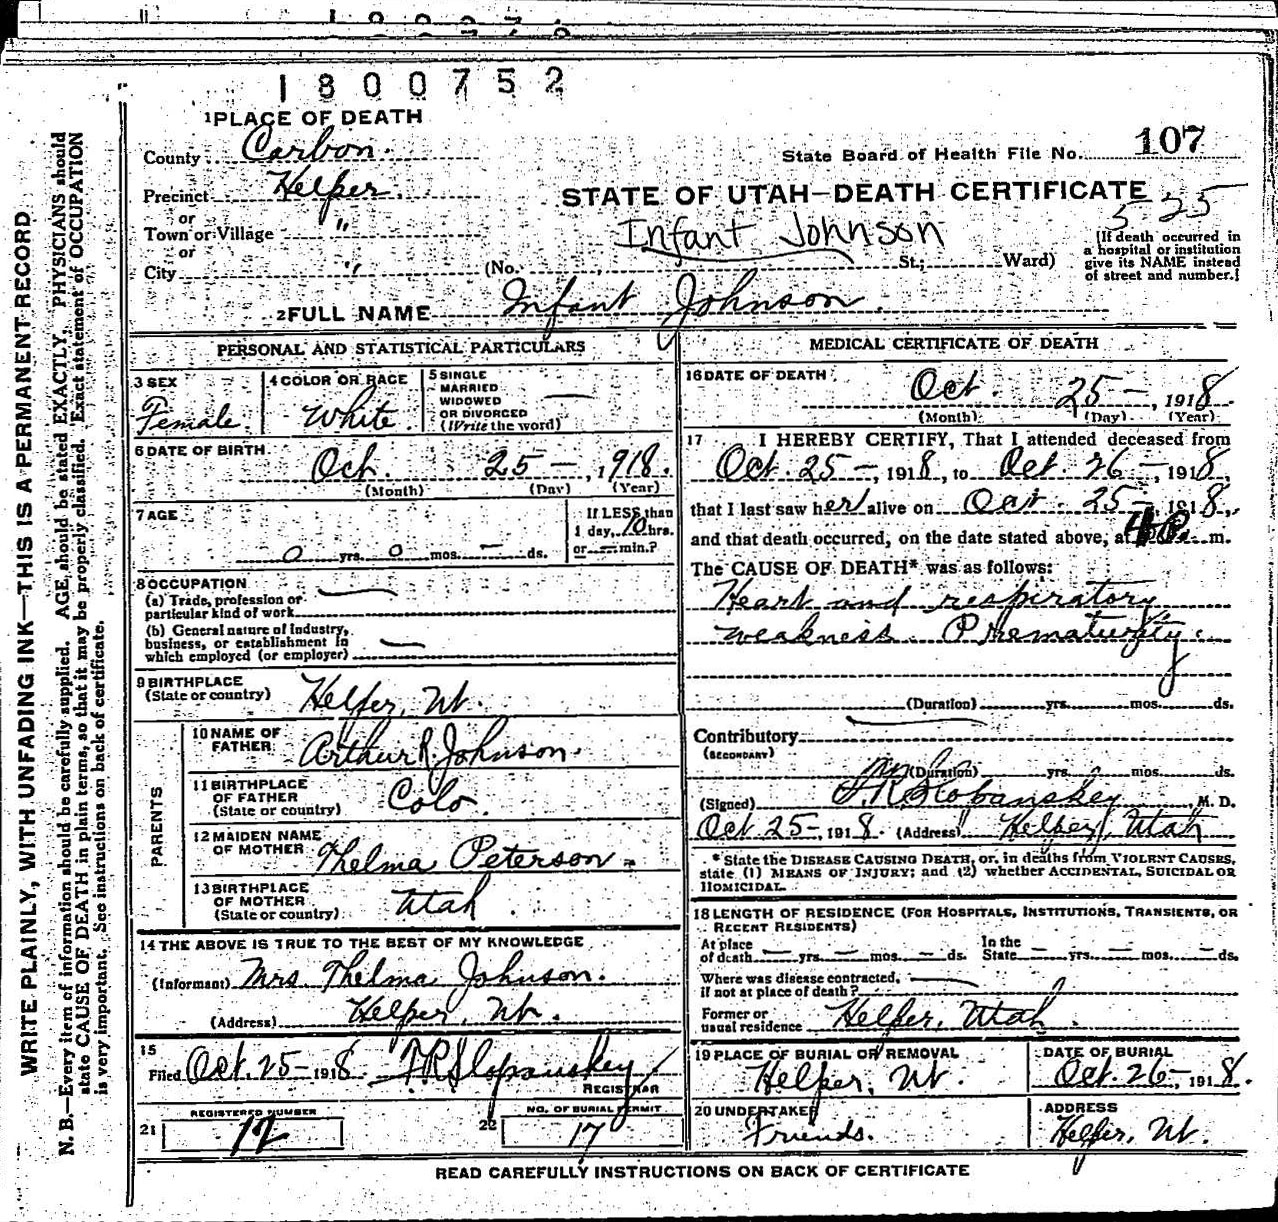 1800752
1 PLACE OF DEATH
County Carbon.
State Board of Health File No. 107
Precinct Helper.
STATE OF UTAH—DEATH CERTIFICATE
or
Town or Village "
5 25
Infant Johnson
or
City "
(No. St.; Ward)
[If death occurred in
a hospital or institution
give its NAME instead
of street and number.]
2 FULL NAME Infant Johnson.
PERSONAL AND STATISTICAL PARTICULARS
3 SEX
Female.
4 COLOR OR RACE
White.
5 SINGLE
MARRIED
WIDOWED
OR DIVORCED
(Write the word) —
6 DATE OF BIRTH
Oct. 25 — , 1918.
(Month) (Day) (Year)
7 AGE
0 yrs. 0 mos. — ds.
If LESS than
1 day, 10 hrs.
or — min.?
8 OCCUPATION
(a) Trade, profession or
particular kind of work —
(b) General nature of industry,
business, or establishment in
which employed (or employer) —
9 BIRTHPLACE
(State or country) Helper, Ut.
PARENTS
10 NAME OF
FATHER Arthur R. Johnson.
11 BIRTHPLACE
OF FATHER
(State or country) Colo.
12 MAIDEN NAME
OF MOTHER Thelma Peterson.
13 BIRTHPLACE
OF MOTHER
(State or country) Utah.
14 THE ABOVE IS TRUE TO THE BEST OF MY KNOWLEDGE
(Informant) Mrs. Thelma Johnson.
(Address) Helper, Ut.
15
Filed Oct. 25 — 1918.
REGISTRAR
REGISTERED NUMBER
21 12
NO. OF BURIAL PERMIT
22 17
MEDICAL CERTIFICATE OF DEATH
16 DATE OF DEATH
Oct. 25 — , 1918.
(Month) (Day) (Year)
17 I HEREBY CERTIFY, That I attended deceased from
Oct. 25 — , 1918, to Oct. 26 — , 1918,
that I last saw her alive on Oct. 25 — 1918,
and that death occurred, on the date stated above, at 4 P. m.
The CAUSE OF DEATH* was as follows:
Heart and respiratory
weakness. Prematurity.
(Duration) yrs. mos. ds.
Contributory
(SECONDARY)
(Duration) yrs. mos. ds.
(Signed) M. D.
Oct 25 — , 1918. (Address) Helper, Utah
*State the DISEASE CAUSING DEATH, or, in deaths from VIOLENT CAUSES,
state (1) MEANS OF INJURY; and (2) whether ACCIDENTAL, SUICIDAL OR
HOMICIDAL.
18 LENGTH OF RESIDENCE (FOR HOSPITALS, INSTITUTIONS, TRANSIENTS, OR
RECENT RESIDENTS)
At place
of death — yrs. — mos. — ds.
In the
State — yrs. — mos. — ds.
Where was disease contracted,
if not at place of death? —
Former or
usual residence Helper, Utah.
19 PLACE OF BURIAL OR REMOVAL
Helper, Ut.
DATE OF BURIAL
Oct. 26 — , 1918.
20 UNDERTAKER
Friends.
ADDRESS
Helper, Ut.
READ CAREFULLY INSTRUCTIONS ON BACK OF CERTIFICATE
WRITE PLAINLY, WITH UNFADING INK—THIS IS A PERMANENT RECORD
N. B.—Every item of information should be carefully supplied. AGE should be stated EXACTLY. PHYSICIANS should
state CAUSE OF DEATH in plain terms, so that it may be properly classified. Exact statement of OCCUPATION
is very important. See instructions on back of certificate.